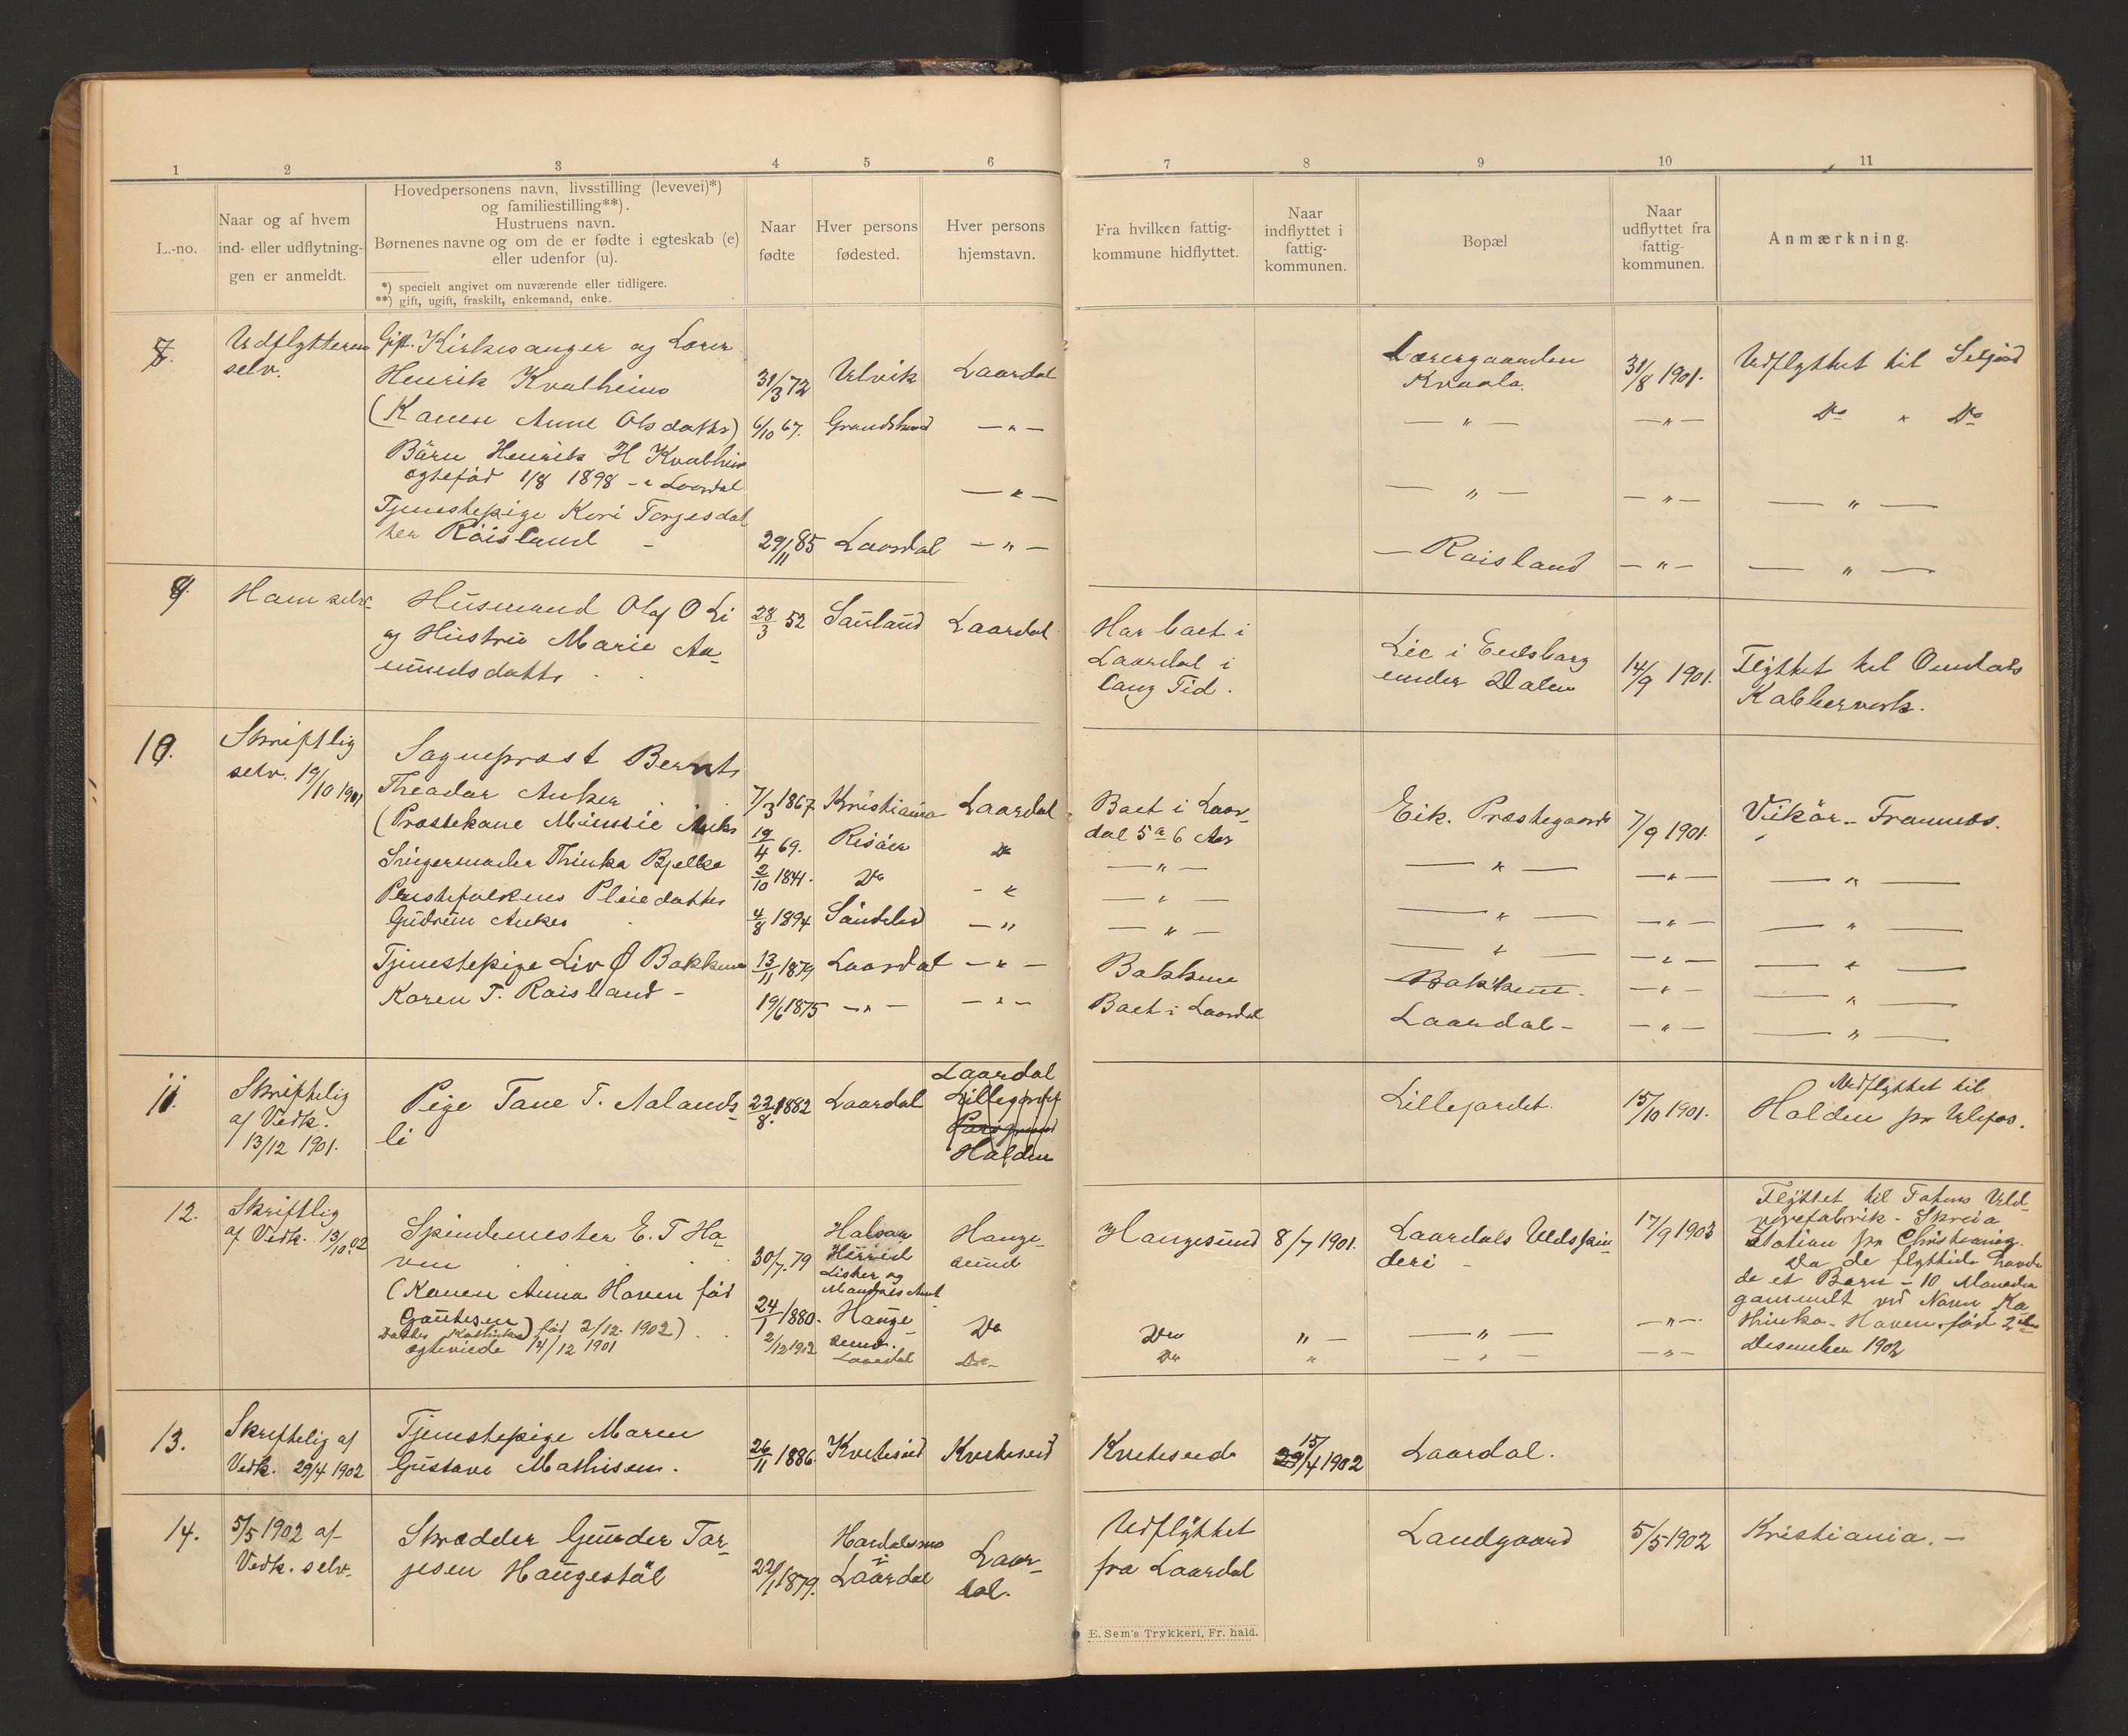 1 2 3 4 5 6 7 8 9 10 11
L.-no.
Naar og af hvem
ind- eller udflytnin-
gen er anmeldt.
Hovedpersonens navn, livsstilling (levevei)*)
og familiestilling**).
Hustruens navn.
Børnenes navne og om de er fødte i egteskab (e)
eller udenfor (u).
*) specielt angivet om nuværende eller tidligere.
**) gift, ugift, fraskilt, enkemand, enke.
Naar
fødte
Hver persons
fødested.
Hver persons
hjemstavn.
Fra hvilken fattig-
kommune hidflyttet.
Naar
indflyttet i
fattig-
kommunen.
Bopæl
Naar
udflyttet fra
fattig-
kommunen.
Anmærkning.
7.
Udflytteren
selv.
Gift. Kirkesanger og Lærer
Henrik Kvalheim
31/3 72 Ulvik Laardal
Lærergaarden
Kvaala.
31/8 1901.
Udflyttet til Seljord
(Konen Anne Olsdatter) 6/10 67. — " —
— " — — " — Do " Do
Barn Henrik H Kvalheim
ægtefød 1/8 1898 - Laardal — " —
— " — — " — — " —
Tjenestepige Kari Torgesdat
ter Råisland - 29/11 85 Laardal — " —
— Roisland — " — — " —
Ham selv
Husmand Olaf O Li
og Hustru Marie Aa-
mundsdatter
28/3 52 Sauland Laardal
Har boet i
Laardal i
lang Tid.
Lie i Eidsborg
under Dalen
14/9 1901.
Flyttet til Omdals
Kobberverk.
10.
Skriftlig
selv. 19/10 1901
Sogneprest Bernt
Theodor Anker
7/3 1867 Kristiania Laardal
Boet i Laar-
dal 5 a 6 Aar
Eik. Prestegaard 7/9 1901. Vikör -
(Prestekone Minnie Anker 19/4 69. Risöer Do
— " — — " — — " — — " —
Svigermoder Thinka Bjelke 2/10 1841. Do - "
— " — — " — — " — — " —
Prestefolkens Pleiedatter
Gudrun Anker 4/8 1894 Söndeled — "
— " — — " — — " — — " —
Tjenestepige Liv Ø Bakken 13/11 1879 Laardal — " —
Bakken Bakken - — " — — " —
Karen T. Roisland - 19/6 1875 — " — — " —
Boet i Laardal Laardal - — " — — " —
11.
Skriftelig
af Vedk.
13/12 1901.
Pige Tane T. Aalands-
li
22/8. 1882 Laardal
Laardal
Lillejordet
Porsgrund
Halden
Lillejordet. 15/10 1901.
Udflyttet til
Holden pr Ulefos.
12.
Skriftlig
af Vedk. 13/10.02
Spindemester E. T Ha-
ven
30/7. 79
Halsaa
Herred
Lister og
Mandals Amt
Hauge-
sund
Haugesund 8/7 1901.
Laardals Uldspin-
deri -
17/9 1903
Flyttet til Totens Uld-
varefabrik - Skreia
Station pr Christiania.
Da de flyttede havde
de et Barn - 10 Maaneder
gammelt ved Navn Ka-
thinka Haven, fød 2den
Desember 1902
(Konen Anna Haven fød
Gautesen)
24/1 1880. Hauge-
sund. Do
Do " — " — — " —
Datter Kathinka fød 2/12 1902)
ægteviede 14/12 1901
2/12 1902 Laardal Do -
Do " — " — — " —
13.
Skriftelig af
Vedk. 29/4 1902
Tjenestepige Maren
Gustava Mathisen.
26/11 1886. Kviteseid Kviteseid
Kviteseid 15/4 1902 Laardal.
14.
5/5 1902 af
Vedk. selv.
Skrædder Gunder Tor-
jesen Haugestöl
22/1 1879.
Laardal
Laar-
dal.
Udflyttet
fra Laardal
Landgaard 5/5 1902 Kristiania. -
E. Sem's Trykkeri, Fr. hald.